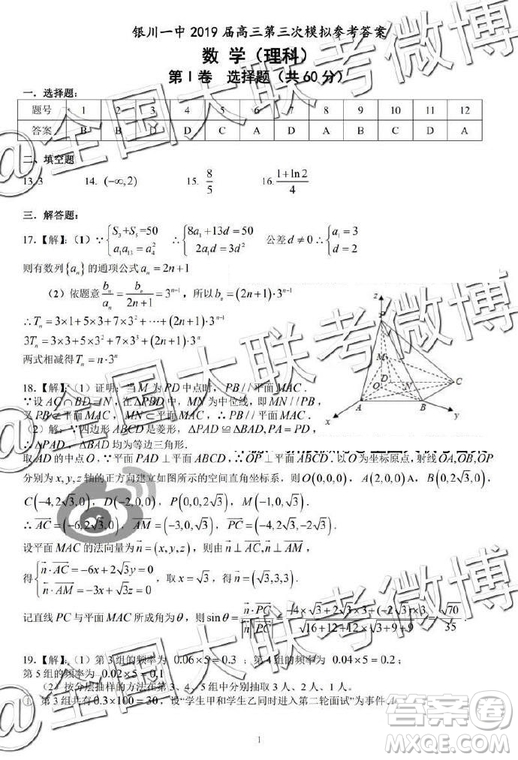 银川一中 2019 届高三第三次模拟参考答案
数 学（理科）
第 I 卷 选择题（共 60 分）
一. 选择题：
题号 1 2 3 4 5 6 7 8 9 10 11 12
答案 B B D D C A A
二. 填空题
13. 3 14. (-∞,2) 15. 8/5 16. (1+ln2)/4
三. 解答题：
17.【解】：（1）∵ {S₃+S₅=50, a₁a₁₃=a₄² ∴ {8a₁+13d=50, 2a₁d=3d² 公差d≠0 ∴ {a₁=3, d=2
则有数列{aₙ}的通项公式 aₙ=2n+1
（2）依题意 bₙ/aₙ = bₙ/(2n+1) = 3ⁿ⁻¹，所以 bₙ=(2n+1)·3ⁿ⁻¹
∴Tₙ=3×1+5×3+7×3²+···+(2n+1)·3ⁿ⁻¹
3Tₙ=3×3+5×3²+7×3³+···+(2n+1)·3ⁿ
两式相减得 Tₙ=n·3ⁿ
18.【解】（1）证明：当 M 为 PD 中点时，PB∥平面 MAC.
∵设 AC∩BD=N，在△PDB中，MN 为中位线，即 MN∥PB，
又 PB⊄平面 MAC，∴PB∥平面 MAC.
（2）解：∵四边形 ABCD 是菱形，△PAD≌△BAD，
∴△PAD，△BAD 均为等边三角形.
取 AD 的中点 O，∵平面PAD⊥平面ABCD，∴OP⊥平面ABCD. 以 O 为坐标原点，射线OA,OB,OP
分别为 x,y,z 轴的正方向建立如图所示的空间直角坐标系，则 O(0,0,0)，A(2,0,0)，
C(-4,2√3,0)，D(-2,0,0)，P(0,0,2√3)，M(-1,0,√3).
∴AC=(-6,2√3,0)，AM=(-3,0,√3).
设平面 MAC 的法向量为 n=(x,y,z)，则由 n⊥AC，n⊥AM，
得 {n·AC=-6x+2√3y=0, n·AM=-3x+√3z=0. 取 x=√3，得 n=(√3,3,3).
记直线 PC 与平面 MAC 所成角为θ，则 sinθ=
19.【解】：（1）第 3 组的频率为 0.06×5=0.3；第 4 组的频率为 0.04×5=0.2；
第 5 组的频率为 0.02×5=0.1
（2）按分层抽样的方法在第 3、4、5 组中分别抽取 3 人、2 人、1 人.
① 第 3 组共有0.3×100=30，设"学生甲和学生乙同时进入第二轮面试"为事件
1
z
P
M
D
C
N
O
A
B
x
y
@全国大联考微博
@全国大联考微博
答案圈
MXQE.COM